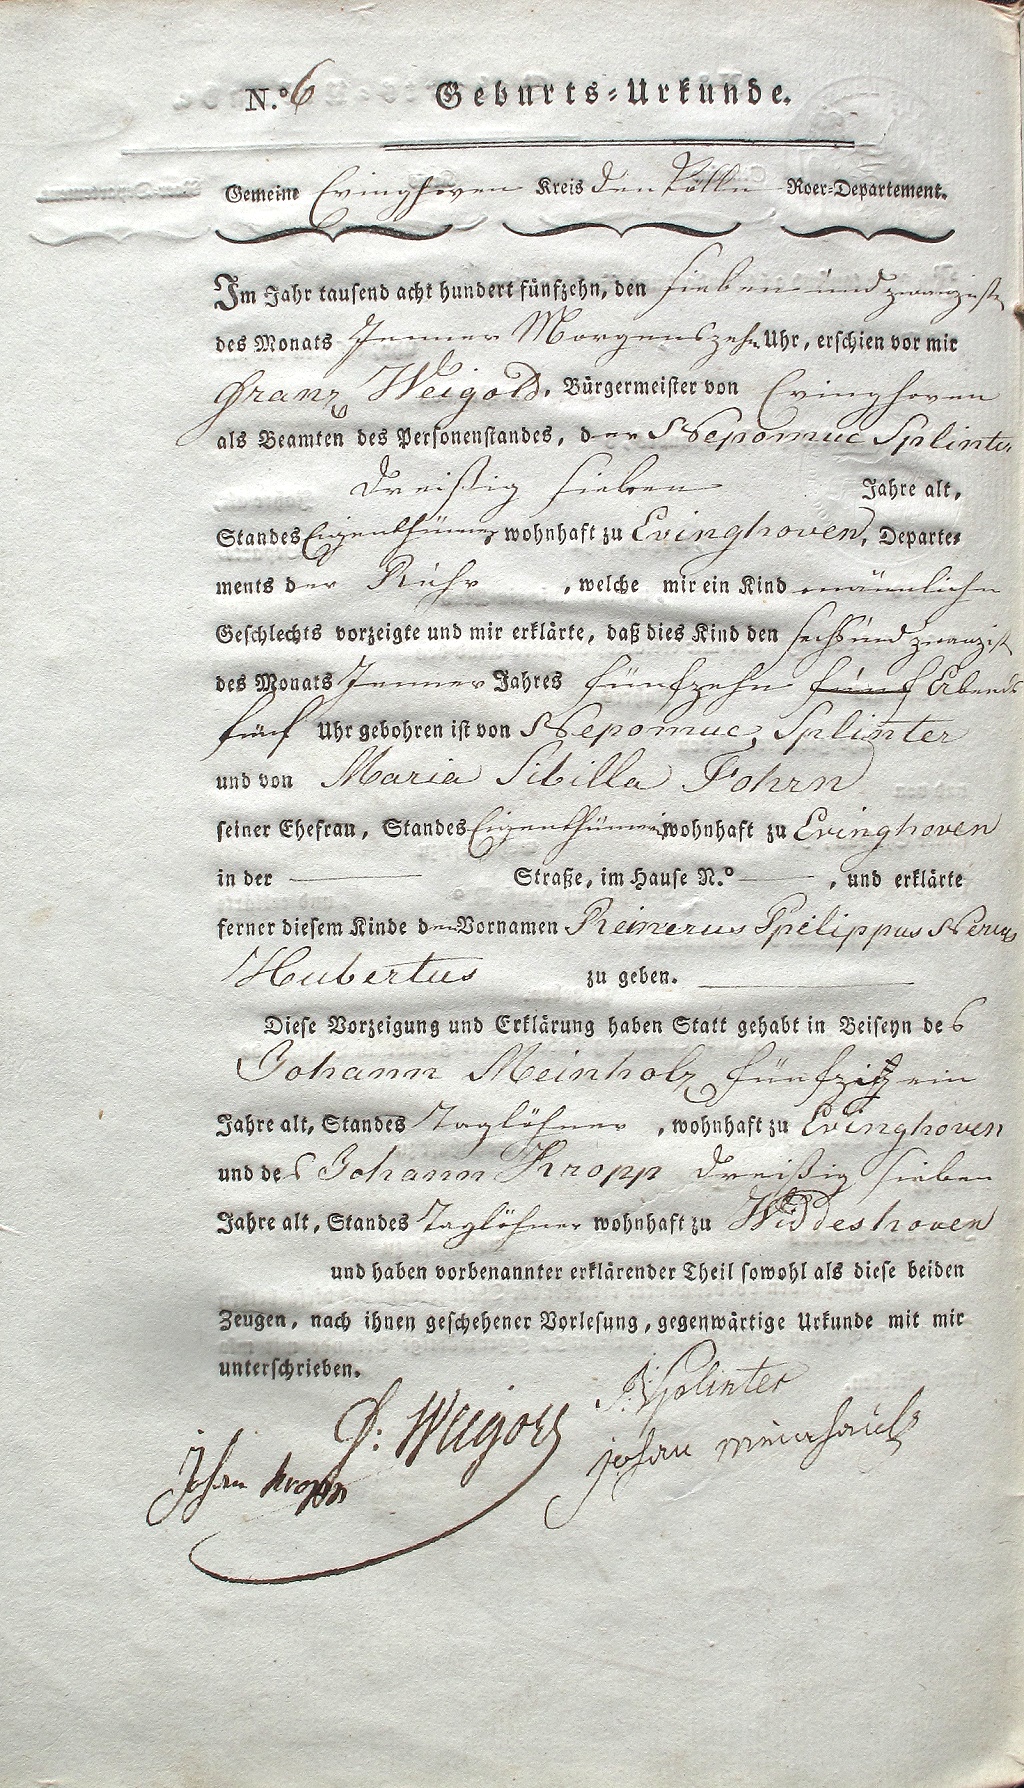 N.º 6 Geburts-Urkunde.
Gemeine Evinghoven Kreis Kölln Roer-Departement.
Im Jahr tausend acht hundert fünfzehn, den sieben und zwanzigsten
des Monats Jenner Morgens zehn Uhr, erschien vor mir
Franz Weigold, Bürgermeister von Evinghoven
als Beamten des Personenstandes, der Nepomuc Splinter
dreißig sieben Jahre alt,
Standes Eigenthümer wohnhaft zu Evinghoven, Departe-
ments der Ruhr, welche mir ein Kind männlichen
Geschlechts vorzeigte und mir erklärte, daß dies Kind den sechs und zwanzigst
des Monats Jenner Jahres fünfzehn fünf Abends
fünf Uhr gebohren ist von Nepomuc Splinter
und von Maria Sibilla Fohrn
seiner Ehefrau, Standes wohnhaft zu Evinghoven
in der Straße, im Hause N.º, und erklärte
ferner diesem Kinde den Vornamen Reinerus Philippus
Hubertus zu geben.
Diese Vorzeigung und Erklärung haben Statt gehabt in Beiseyn des
Johann Meinholz fünfzig ein
Jahre alt, Standes Taglöhner, wohnhaft zu Evinghoven
und des Johann Kropp dreißig sieben
Jahre alt, Standes Taglöhner wohnhaft zu Widdeshoven
und haben vorbenannter erklärender Theil sowohl als diese beiden
Zeugen, nach ihnen geschehener Vorlesung, gegenwärtige Urkunde mit mir
unterschrieben.
Splinter
F: Weigold
Johan Kropp